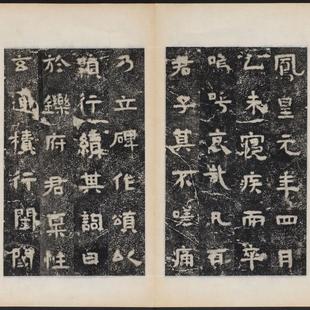 鳳皇元年四月
乙未寢疾而卒
嗚呼哀哉凡百
君子莫不嗟痛
乃立碑作頌以
顯行績其詞曰
於鑠府君稟性
玄通積行閨閫